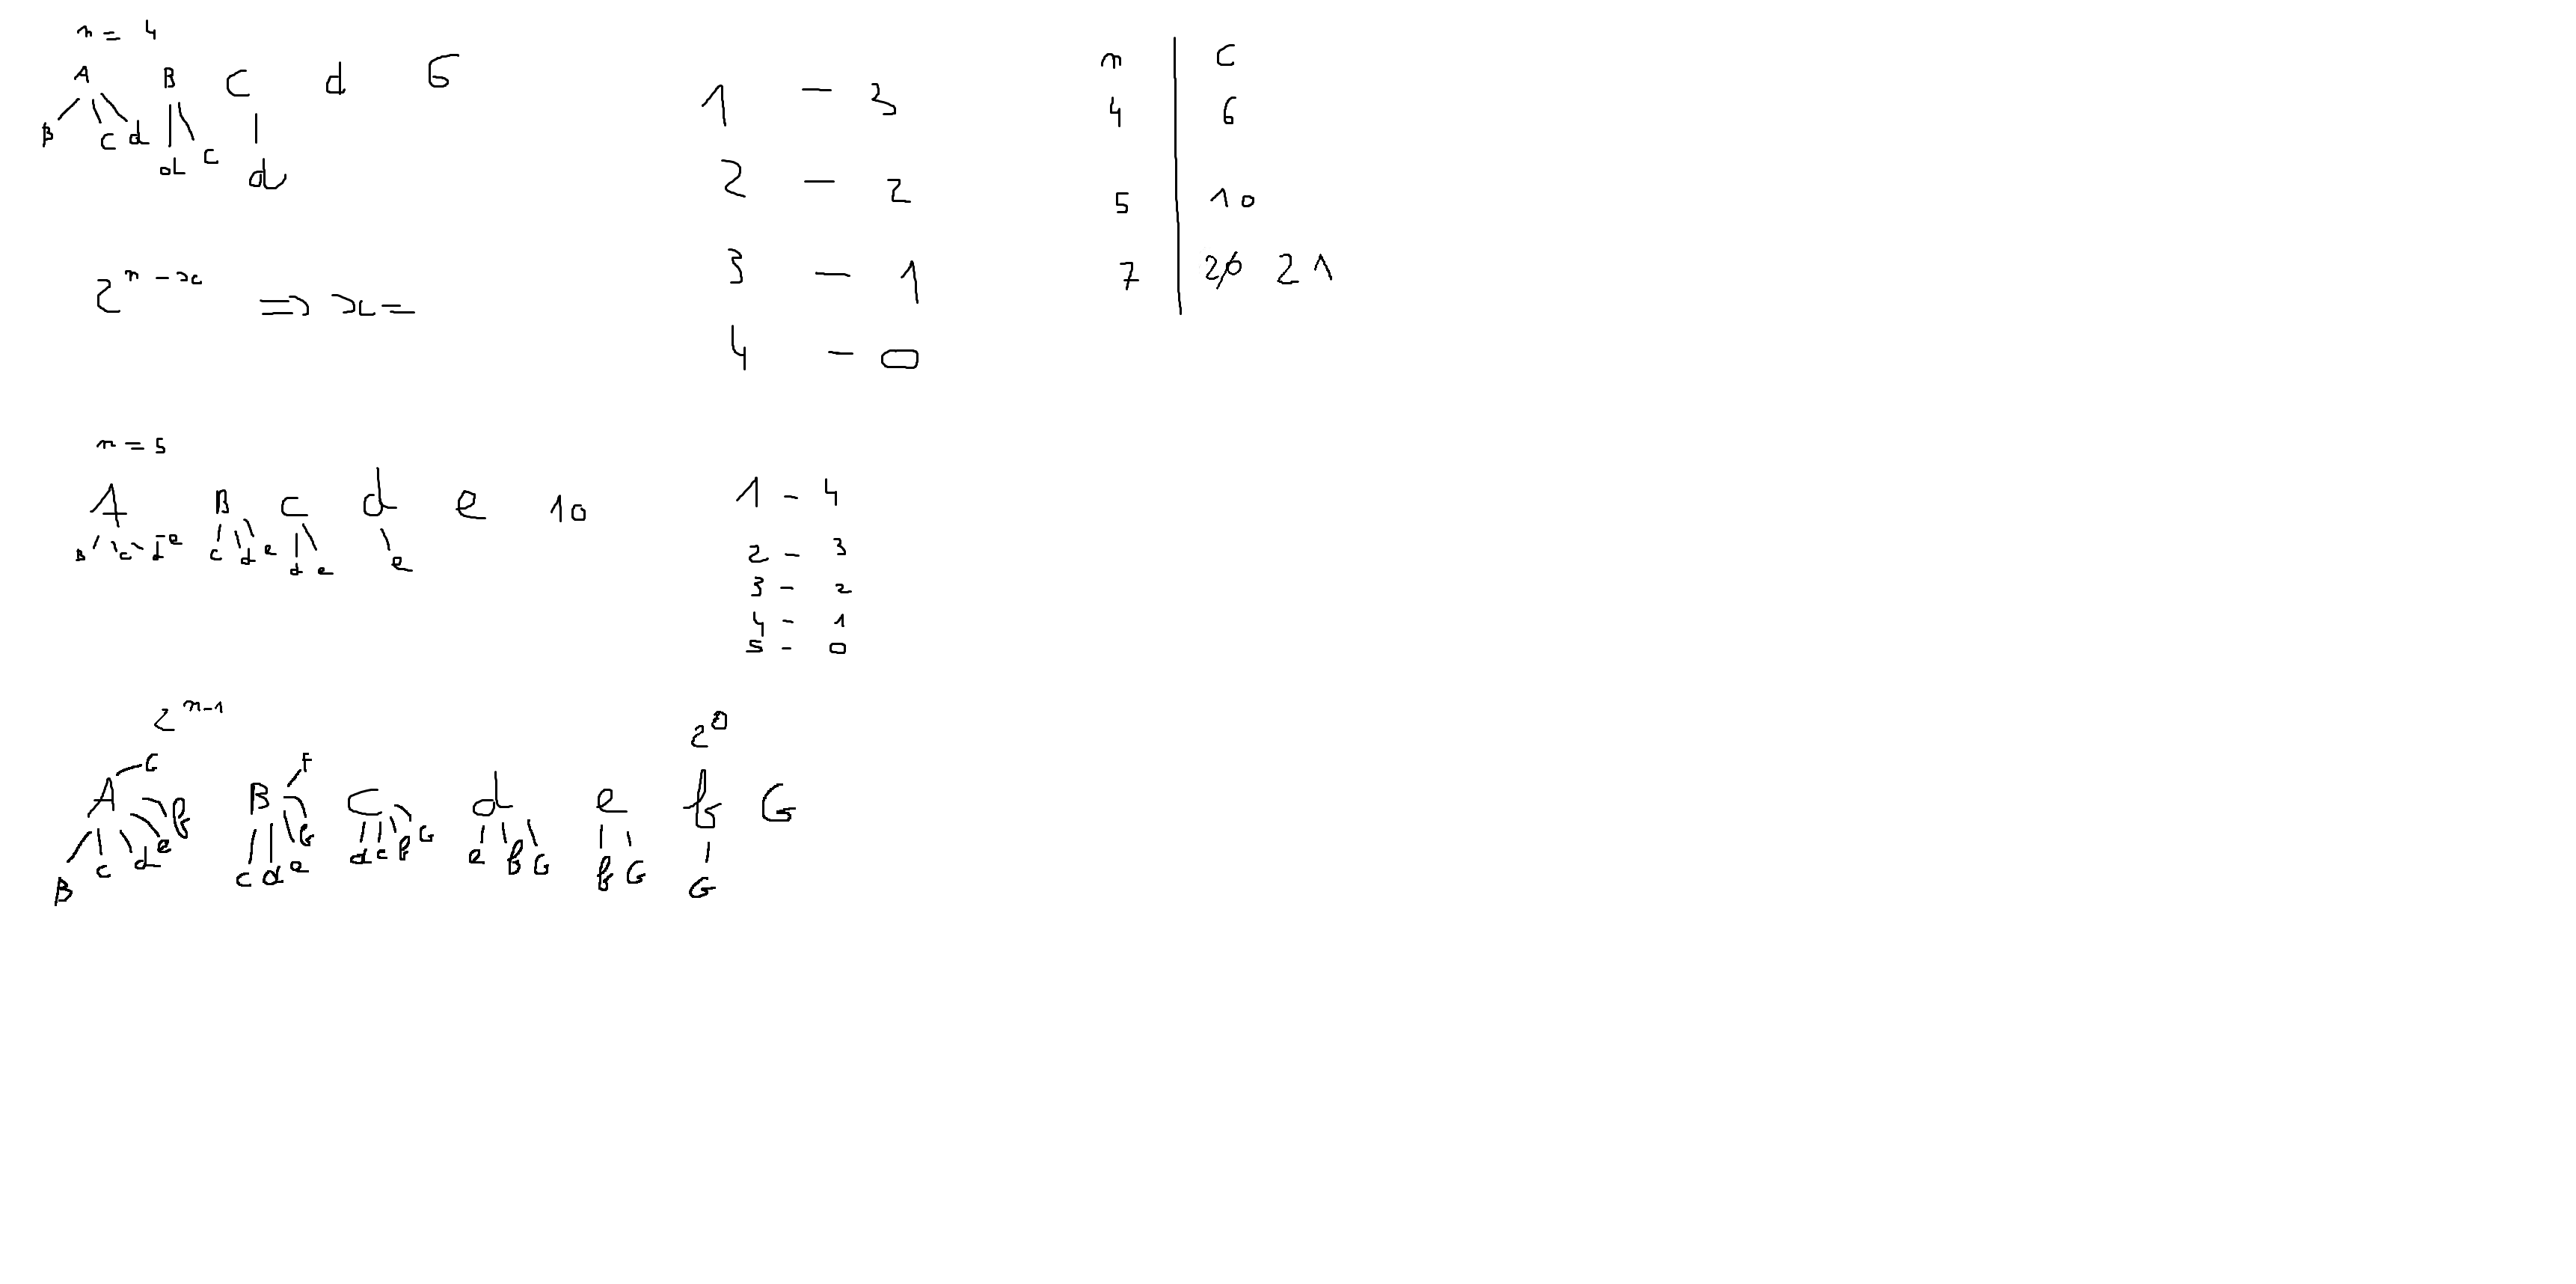 n = 4
A B C d 6
B C d d C d
2^n-x => x =
1 - 3
2 - 2
3 - 1
4 - 0
n C
4 6
5 10
7 20 21
n = 5
A B C d e 10
B C d e C d e d e e
1 - 4
2 - 3
3 - 2
4 - 1
5 - 0
2^n-1 2^0
G F
A B C d e f G
B C d e f C d e G d e f G e f G f G G